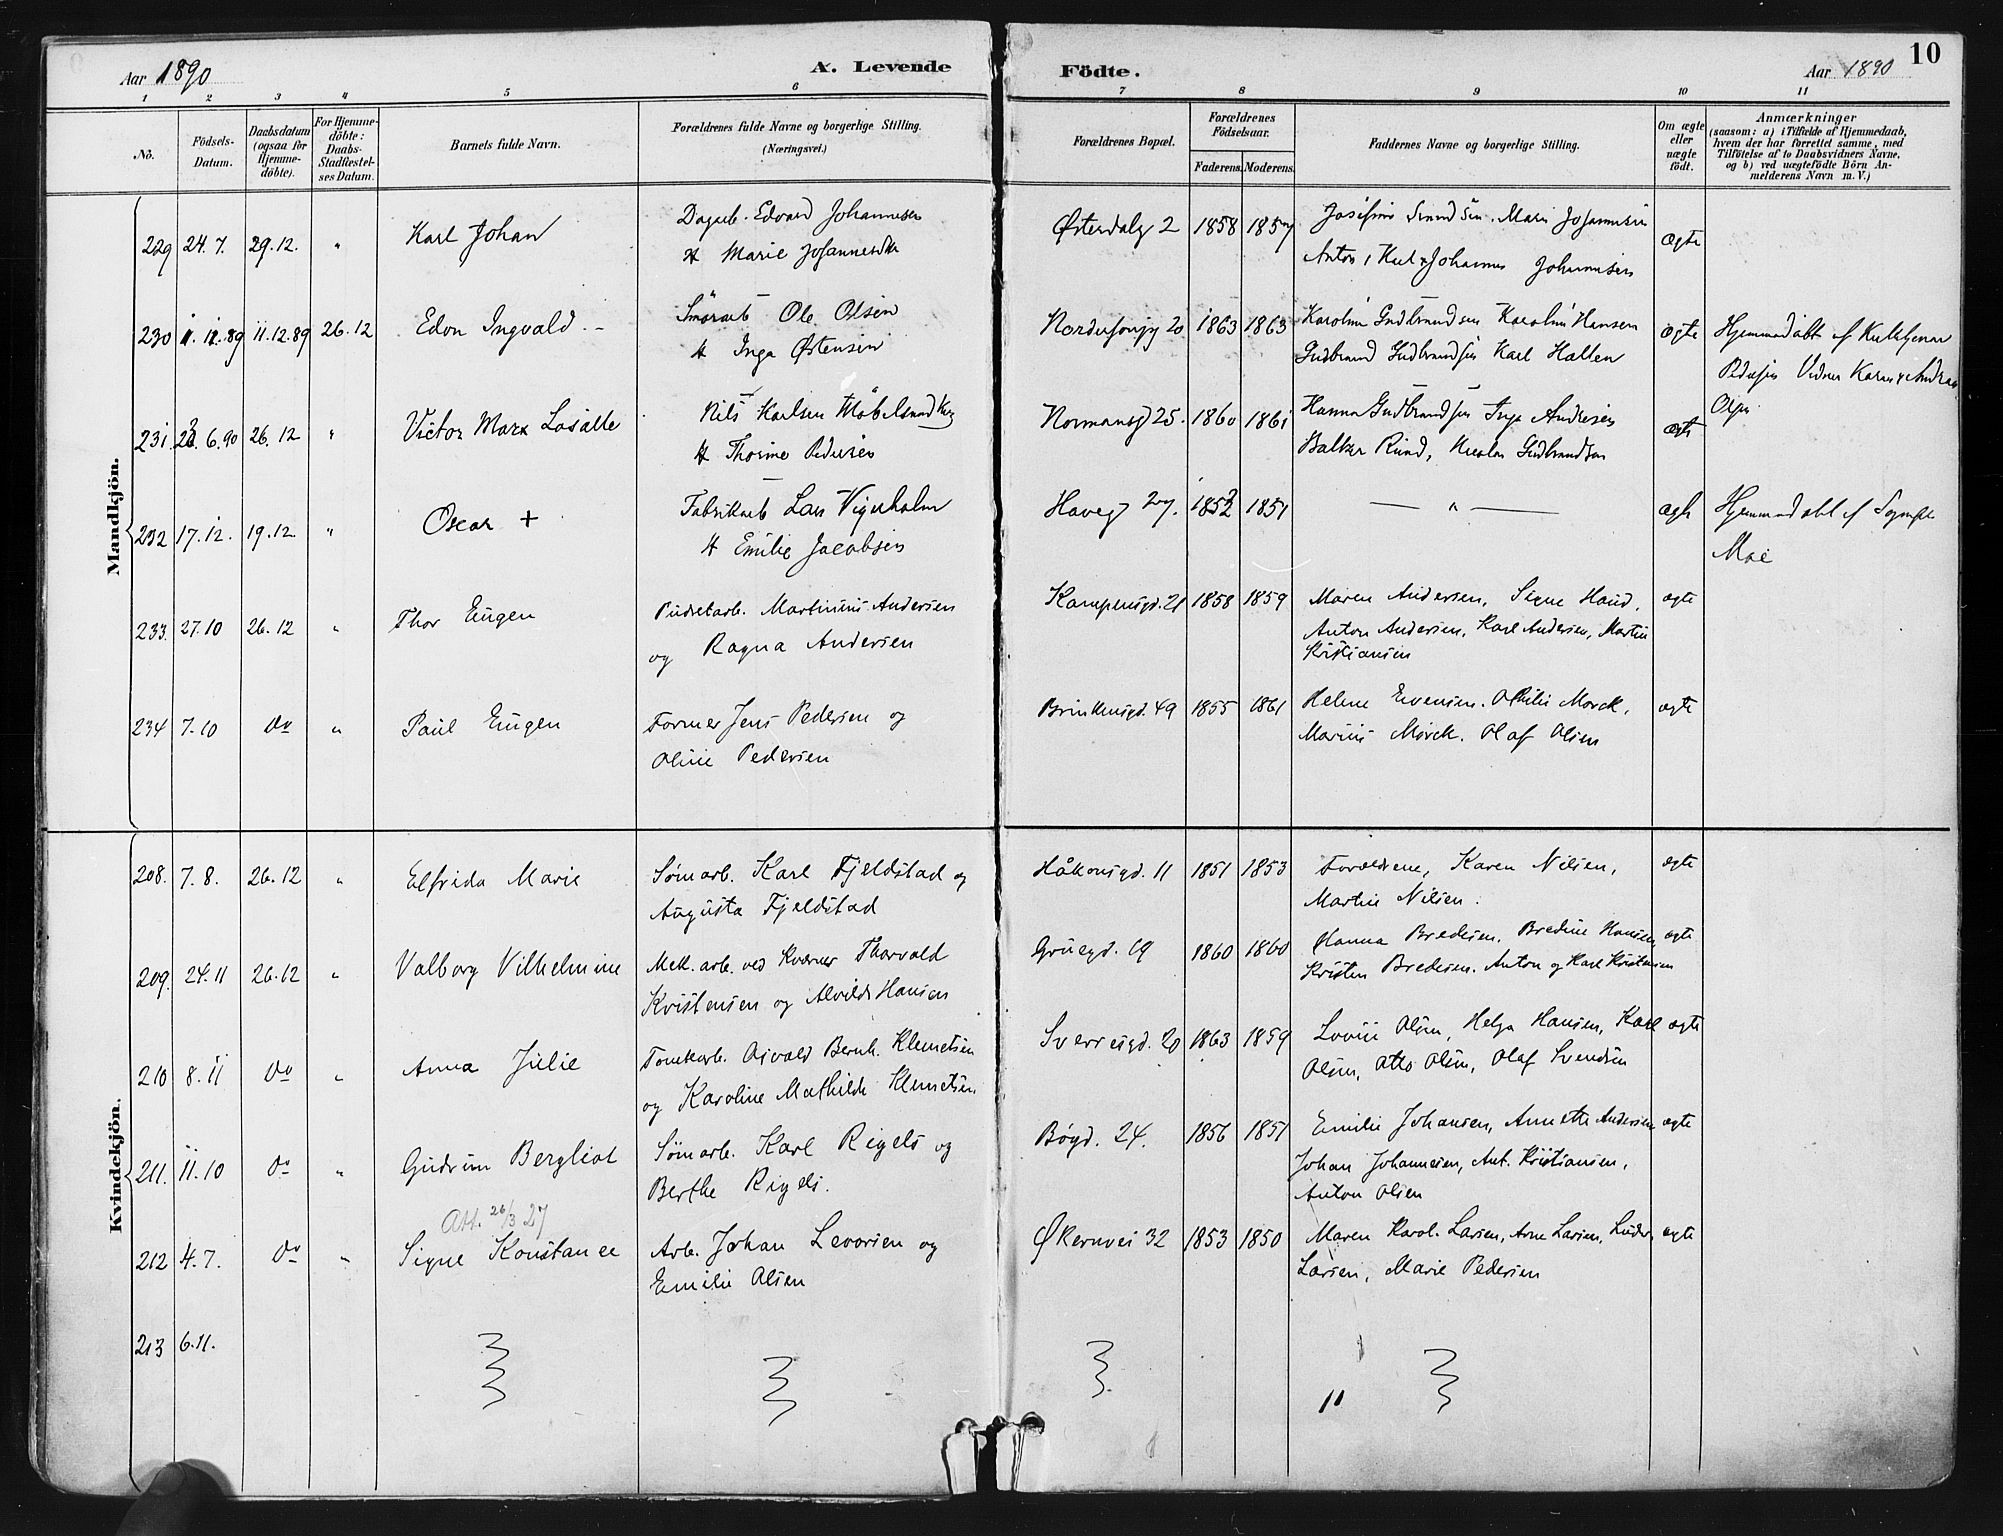 Aar 1890
A. Levende
Födte.
Aar 1890
10
1 2 3 4 5 6 7 8 9 10 11
No.
Födsels-Datum.
Daabsdatum (ogsaa for Hjemme-döbte).
For Hjemme-döbte: Daabs-Stadfæstel-ses Datum.
Barnets fulde Navn.
Forældrenes fulde Navne og borgerlige Stilling.
(Næringsvei.)
Forældrenes Bopæl.
Forældrenes Födselsaar.
Faderens. Moderens.
Faddernes Navne og borgerlige Stilling.
Om ægte eller uægte födt.
Anmærkninger
(saasom: a) i Tilfælde af Hjemmedaab,
hvem der har forrettet samme, med
Tilföielse af to Daabsvidners Navne,
og b) ved uægtefödte Börn An-
melderens Navn m. V.)
Mandkjön.
229 24. 7. 29. 12. " Karl Johan Dagarb. Edvard Johannesen Østerdalg 2 1858 1857 Marie Johannesen ægte
& Marie Anton, Karl & Johannes Johannesen
230 11. 12. 89 26. 12 Edon Ingvald Ole Olsen 20 1863 1863 Karoline Gudbrandsen Karoline Hansen ægte Hjemmedøbt af
& Inga Østensen Gudbrand Gudbrandsen Karl Hallen Vidner Karen & Andreas
231 6. 90 26. 12 " Victor Marx Lasalle Nils Karlsen Möbelsnedker Normansg 25. 1860 1861 Hanna Gudbrandsen Inga Andersen ægte Olsen
& Pedersen Gudbrandsen
232 17. 12. 19. 12 " Oscar + Fabrikarb Lars Vigerholm Haveg 27. 1852 1851 — " — ægte Hjemmedøbt af
& Emilie Jacobsen Moe
233. 27. 10 26. 12 " Thor Eugen Pudsetarb. Martinius Andersen Kampensgd. 21 1858 1859 Maren Andersen, Signe Haud, ægte
og Ragna Andersen Anton Andersen, Karl Andersen, Martin
Kristiansen
234 7. 10 do " Paul Eugen Former Jens Pedersen og Brinkensgd. 49 1855 1861 Helene Evensen. Othilie Morck, ægte
Oline Pedersen Marius Mörck. Olaf Olsen
Kvindekjön.
208. 7. 8. 26. 12 " Elfrida Marie Sømarb. Karl Fjeldstad og Håkonsgd. 11 1851 1853 Forældrene, Karen Nilsen, ægte
Augusta Fjeldstad Martin Nilsen.
209. 24. 11 26. 12 " Valborg Vilhelmine Mek. arb. ved Kværner Thorvald Grüegd. 19 1860 1860 Hanna Bredesen, Bredine Hansen, ægte
Kristensen og Alvilde Hansen Kristen Bredesen. Anton og Karl Kristensen
210 8. 11 do " Anna Julie Tomtearb. Osvald Bernh. Klemetsen Sverresgd. 20 1863 1859 Lovise Olsen, Helga Hansen, Karl ægte
og Karoline Mathilde Klemetsen Olsen, Otto Olsen, Olaf Svendsen
211. 11. 10 do " Gudrun Bergliot Sømarb. Karl Rigels og Bøgd. 24. 1856 1851 Emilie Johansen, Annette Andersen ægte
Berthe Rigels. Johan Johannesen, Ant. Kristiansen,
Anton Olsen
Att. 26/3 27
212 4. 7. do " Signe Konstance Arb. Johan Levorsen og Økernvei 32 1853 1850 Maren Karol. Larsen, Arne Larsen, Ludv. ægte
Emilie Olsen Larsen, Marie Pedersen
213 6. 11.
"